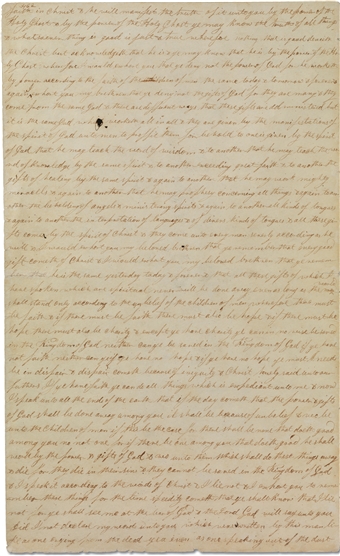 in Christ & he will manifest the truth of it unto you by the power of the
Holy Ghost & by the power of the Holy Ghost ye may know the truth of all things
& whatsoever thing is good is just & true wherefore nothing that is good denieth
the Christ but acknowledgeth that he is & ye may know that he is by the power of the Holy
Ghost wherefore I would exhort you that ye deny not the power of God for he worketh
by power according to the faith of the children of men the same today & tomorrow & forever &
again I exhort you my brethren that ye deny not the gifts of God for they are many & they
come from the same God & there are different ways that these gifts are administered but
it is the same God which worketh all in all & they are given by the manifestations of
the spirit of God unto men to profit them for behold to one is given by the spirit
of God that he may teach the word of wisdom & to another that he may teach the word
of knowledge by the same spirit & to another exceeding great faith & to another the
gifts of healing by the same spirit & again to another that he may work mighty
miracles & again to another that he may prophesy concerning all things & again to an
other the beholding of angels & ministering spirits & again to another all kinds of tongues
& again to another the interpretation of languages & of divers kinds of tongues & all these gifts
come by the spirit of Christ & they come unto every man severally according as he
will & I would exhort you my beloved brethren that ye remember that every good
gift cometh of Christ & I would exhort you my beloved brethren that ye remem
ber that he is the same yesterday today & forever & that all these gifts of which I
have spoken which are spiritual never will be done away even as long as the world
shall stand only according to the unbelief of the children of men wherefore there must
be faith & if there must be faith there must also be hope & if there must be
hope there must also be charity & except ye have charity ye can in no wise be saved
in the Kingdom of God neither can ye be saved in the Kingdom of God if ye have
not faith neither can ye if ye have no hope & if ye have no hope ye must needs
be in despair & despair cometh because of iniquity & Christ truly said unto our
fathers if ye have faith ye can do all things which is expedient unto me & now
I speak unto all the ends of the earth that if the day cometh that the power & gifts
of God shall be done away among you it shall be because of unbelief & wo be
unto the children of men if this be the case for there shall be none that doeth good
among you no not one for if there be one among you that doeth good he shall
work by the power & gifts of God & wo unto them which shall do these things away
& die for they die in their sins & they cannot be saved in the Kingdom of God
& I speak it according to the words of Christ & I lie not & I exhort you to rem
ember these things for the time speedily cometh that ye shall know that I lie
not for ye shall see me at the bar of God & the Lord God will say unto you
did I not declare my words unto you which was written by this man like
as one crying from the dead yea even as one speaking out of the dust